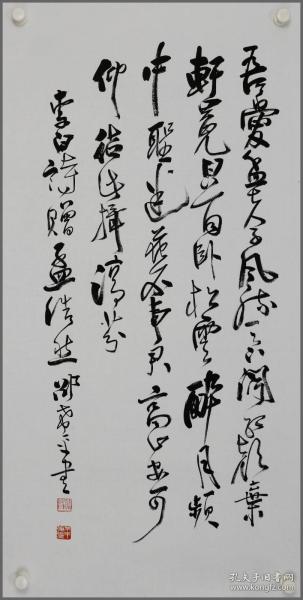 吾愛孟夫子風流天下聞紅顏棄
軒冕白首卧松雲醉月頻
中聖迷花不事君高山安可
仰徒此揖清芬
李白詩贈孟浩然 書
孔夫子旧书网
www.kongfz.com